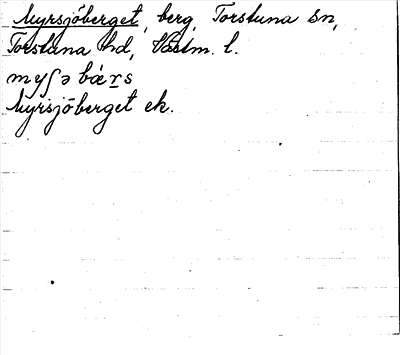 Myrsjöberget, berg, Torstuna sn,
Torstuna hd, Västm. l.
myʃə bá̈rs
Myrsjöberget ek.